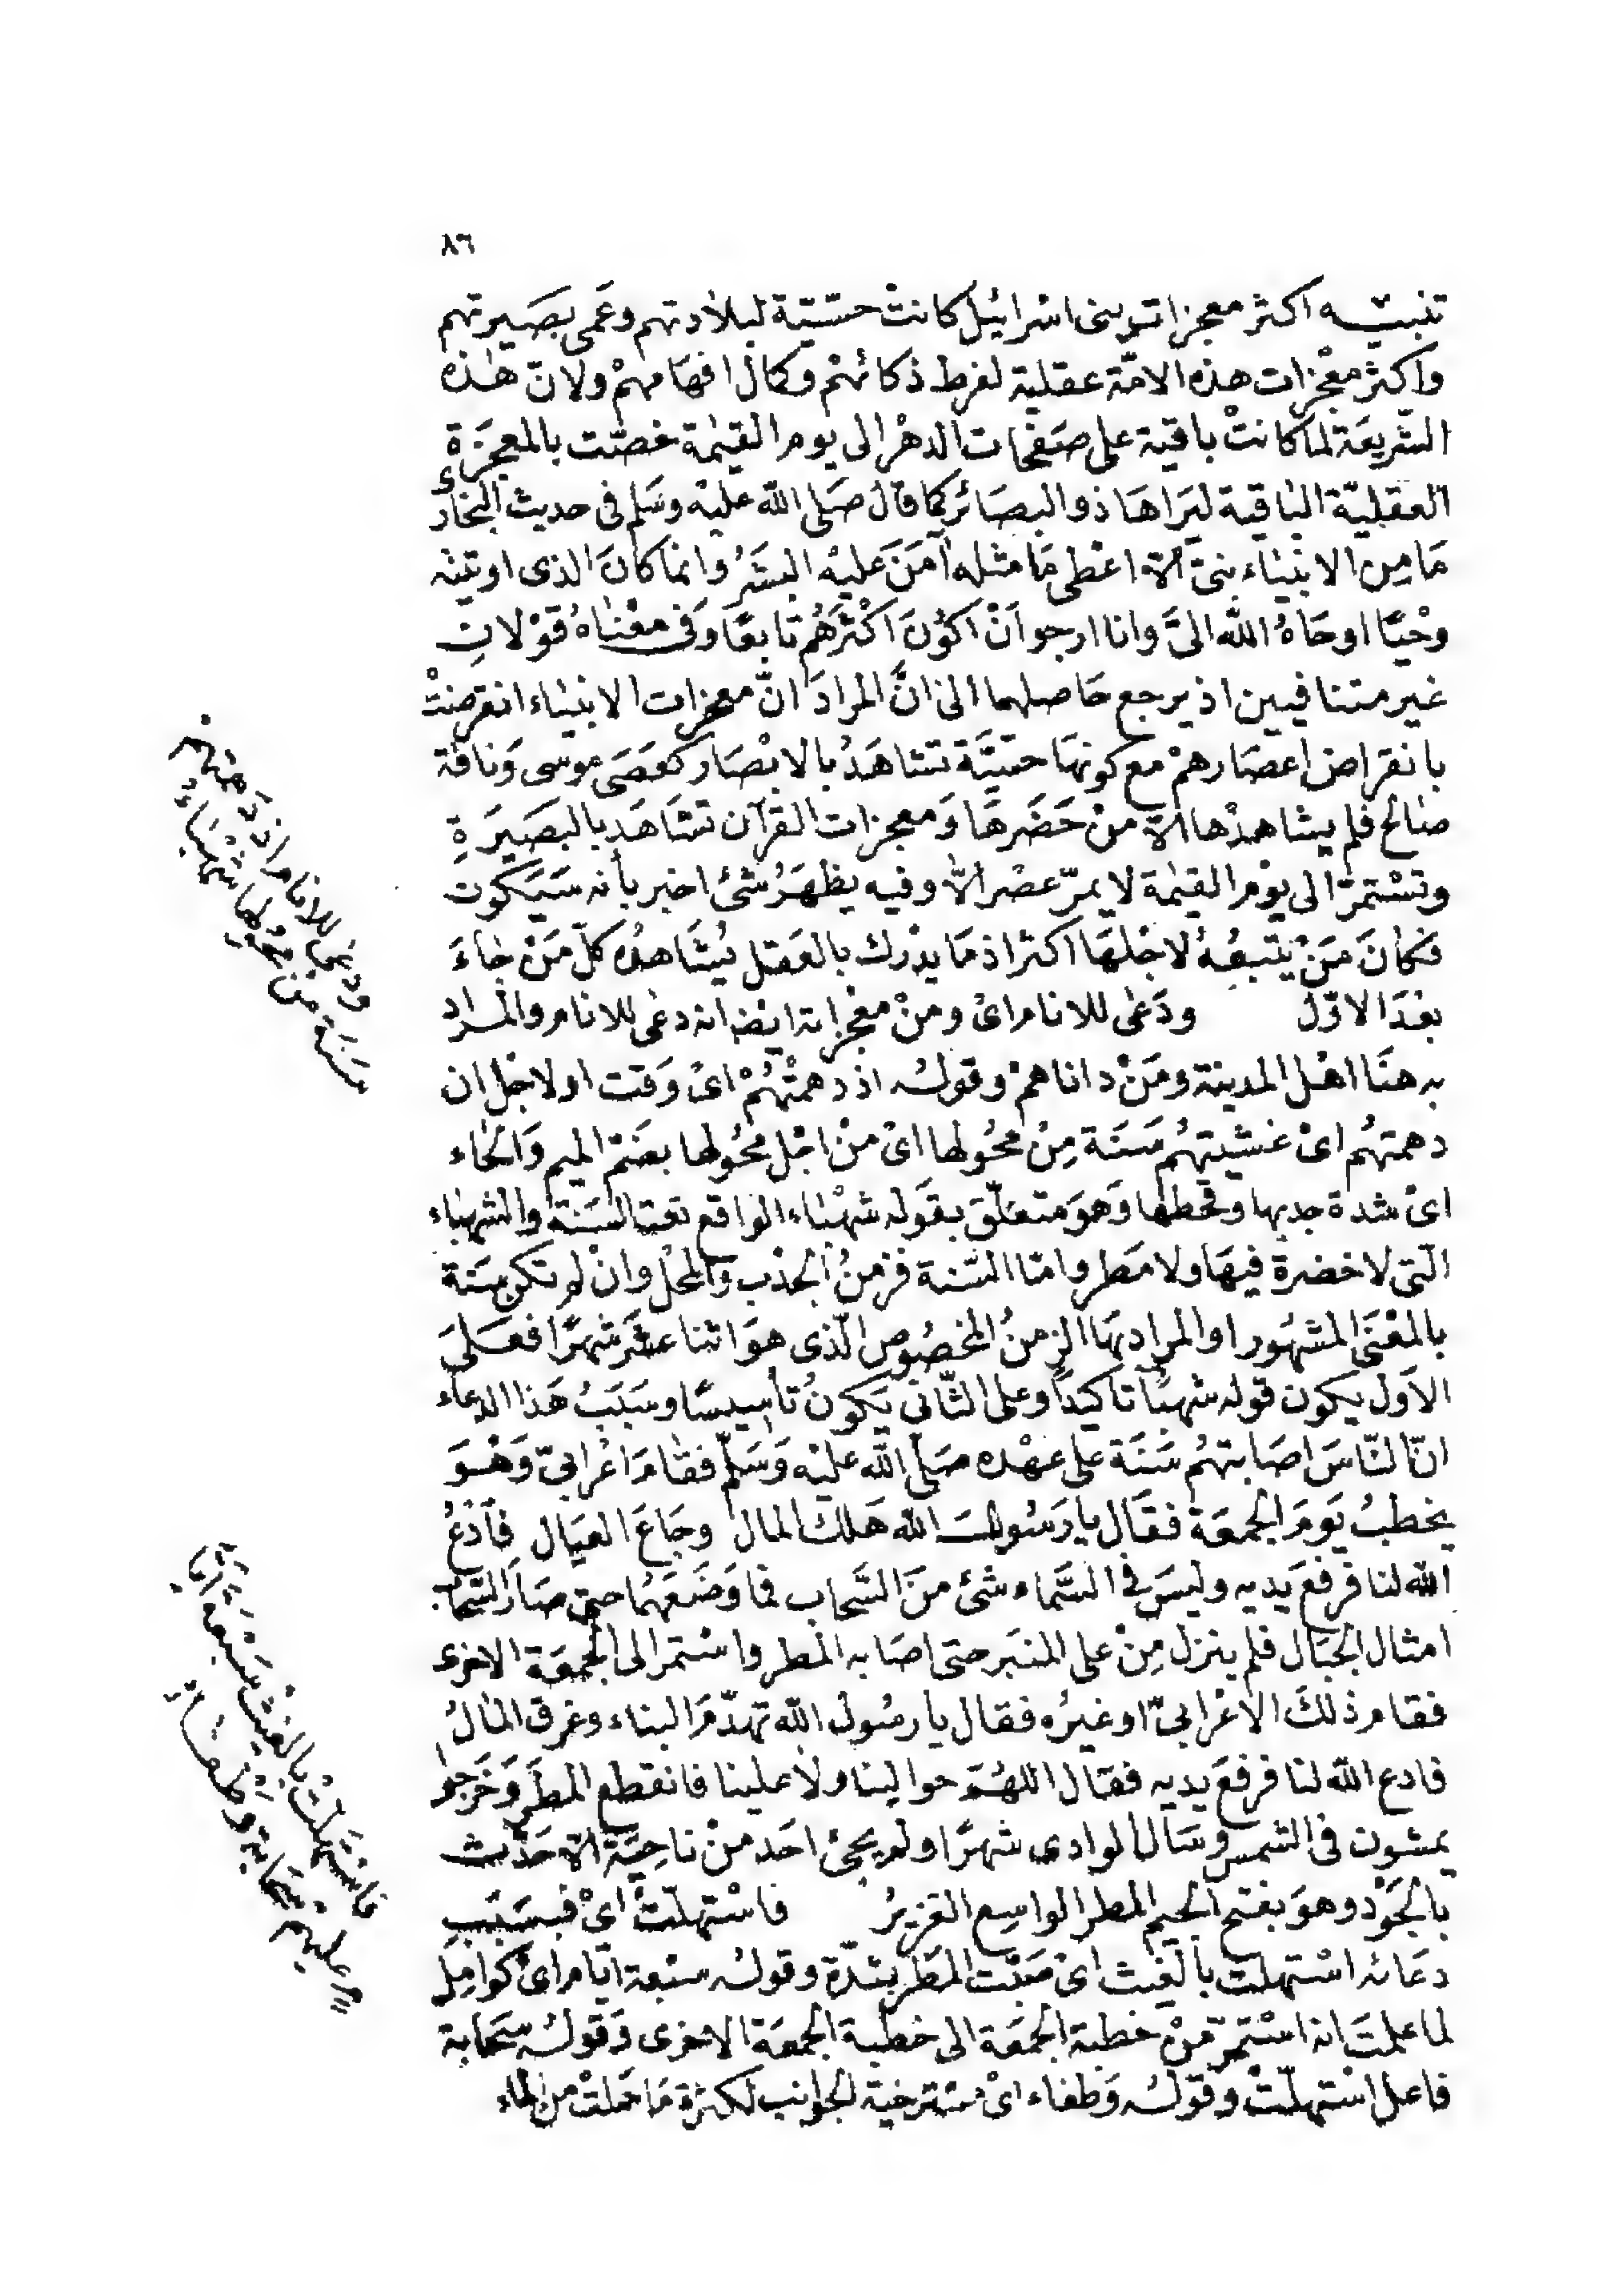 ٨٦
تنبيه اكثر معجزات بنى اسرائيل كانتْ حسّيّة لبلادتهم وعَمى بصَيرتهم
واكثر معْجزات هذه الامّة عقلية لفرط ذكائهمْ وكمال افهَامهمْ ولانّ هٰذه
الشّريعَة لما كانتْ باقية على صَفحات الدهْر الى يوم القيٰمة خصّت بالمعجزَة
العقليّة الباقية ليَراهَا ذو والبصَائر كما قال صَلى الله عليْه وسَلم فى حديث البخارى
مَا مِن الانبيَاء بنىّ الّا اعْطى مَا مثله آمَنَ عَليْه البشَرُ وانما كانَ الذى اوتيته
وحْيًا اوحَاهُ الله الىَّ وانا ارجو اَنْ اَكوُنَ اَكْثرَهُم تابعًا وَفى معْناهُ قوْلانِ
غير متنافيين اذ يرجع حَاصلهما الى انَّ المرادَ انّ معجزات الانبيَاء انقرضتْ
بانقراض اعصَارهمْ مع كونهَا حسّيَّة تشاهَدُ بالابْصَار كعَصَى موسى وَناقة
صَالح فلم يشاهدْها الّا منْ حَضَرهَا وَمعجزات القرآن تشَاهَد بالبصَيرَةِ
وتسْتمرّ الى يوْم القيٰمة لا يمرّ عصْر الّا وفيه يظهَرُ شئ اخبر بأنه سَيَكون
فكانَ مَنْ يتّبعُهُ لاجْلهَا اكثر اذ مَا يدْرك بالعَقل يُشَاهدُه كلّ مَنْ جَاءَ
بعْدَ الاوّل ودَعٰى للانام اىْ ومنْ معْجزاته ايضا انه دعٰى للانام والمراد
به هنَا اهْل المدينة ومَنْ داناهمْ وقولـه اذ دهمتْهُمْ اىْ وَقت او لاجْل ان
دهمتهُم اىْ غشيتهُم سَنَة مِنْ محُولها اىْ منْ اجْل محُولها بضَمّ الميم وَالحاء
اىْ شدة جدبها وقحطها وَهوَ متعَلّق بقوَله شهْبَاء الواقع نعت السَنة والشهبَاء
الّتى لا خضرة فيهَا ولا مَطر وامّا السّنة فزمنُ الجدْب والمحل وانْ لم تكن سَنة
بالمعْنَى المشهُور او المراد بهَا الزمنُ المخصُوص الّذى هوَ اثنا عشَر شهرًا فعَلىَ
الاوَل يكون قوله شهبَآ تاكيدًا وعلى الثّانى يَكونُ تأسيسًا وسَبَبُ هَذا الدعَاء
انّ النّاسَ اصَابتهُم سَنَة على عهْده صَلى الله عليْه وَسَلّم فقامَ اعْرابىّ وَهْوَ
يخطبُ يَومَ الجمعَة فقَال يا رَسُولَـ الله هَلك المال وجَاعَ العيَال فآدْعُ
الله لنا فرفعَ يديه وليسَ فى السَّماء شئ منَ السَّحاب فما وَضَعَهُما حتى صَارَ السّحَاب
امثال الجبَال فلم ينزل مِنْ على المنبَر حتى اصَابه المطر واسْتمر الى الجمعَة الاخرى
فقام ذلكَ الاعْرابىّ او غيرُه فقال يا رسُول الله تهدّمَ البناء وغرق المَالُ
فادع الله لنا فرفعَ يديه فقال اللهُمّ حوالينا ولا علينا فانقطع المطرُ وَخَرجوا
يمشون فى الشمس وسَال الوادى شهرًا ولم يجئْ احَد منْ ناحِيَة الّا حَدّث
بالجَوْد وهوَ بفتح الجيم المطر الواسِع الغزيرُ فاسْتهلّتْ اىْ فبسَبَبِ
دعَائه اسْتهلت بالغيث اىْ صَبّت المطَر بشدّة وقولـه سبْعة ايّام اىْ كوامِل
لما علمتَ انه اسْتمرّ منْ خطبة الجمعَة الى خطبة الجمعَة الاخرى وَقولـه سَحابة
فاعل اسْتهلّتْ وقوَلـه وَطفاء اىْ مسْترخية الجوانب لكثرة مَا حَملتْ من الماء
ودعى للانام اذ دَهمتهم
سَنَة منْ محُولها شهْبَاءُ
فاسْتهلتْ بالغيْث سَبْعَة ايّا
م عليهم سَحَابة وَطفَاءُ